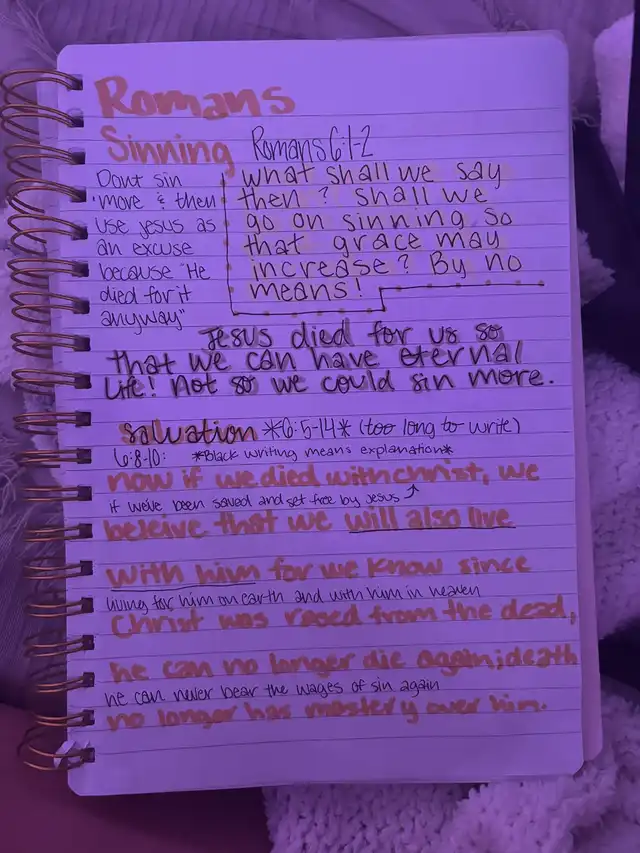 Romans
Sinning Romans 6:1-2
Dont sin
more & then
use jesus as
an excuse
because "He
died for it
anyway"
what shall we say
then? Shall we
go on sinning so
that grace may
increase? By no
means!
Jesus died for us so
that we can have eternal
life! Not so we could sin more.
Salvation *6:5-14* (too long to write)
6:8-10: *Black writing means explanation*
now if we died with christ, we
if we've been saved and set free by Jesus
beleive that we will also live
with him for we know since
living for him on earth and with him in heaven
Christ was rased from the dead,
he can no longer die again; death
he can never bear the wages of sin again
no longer has mastery over him.